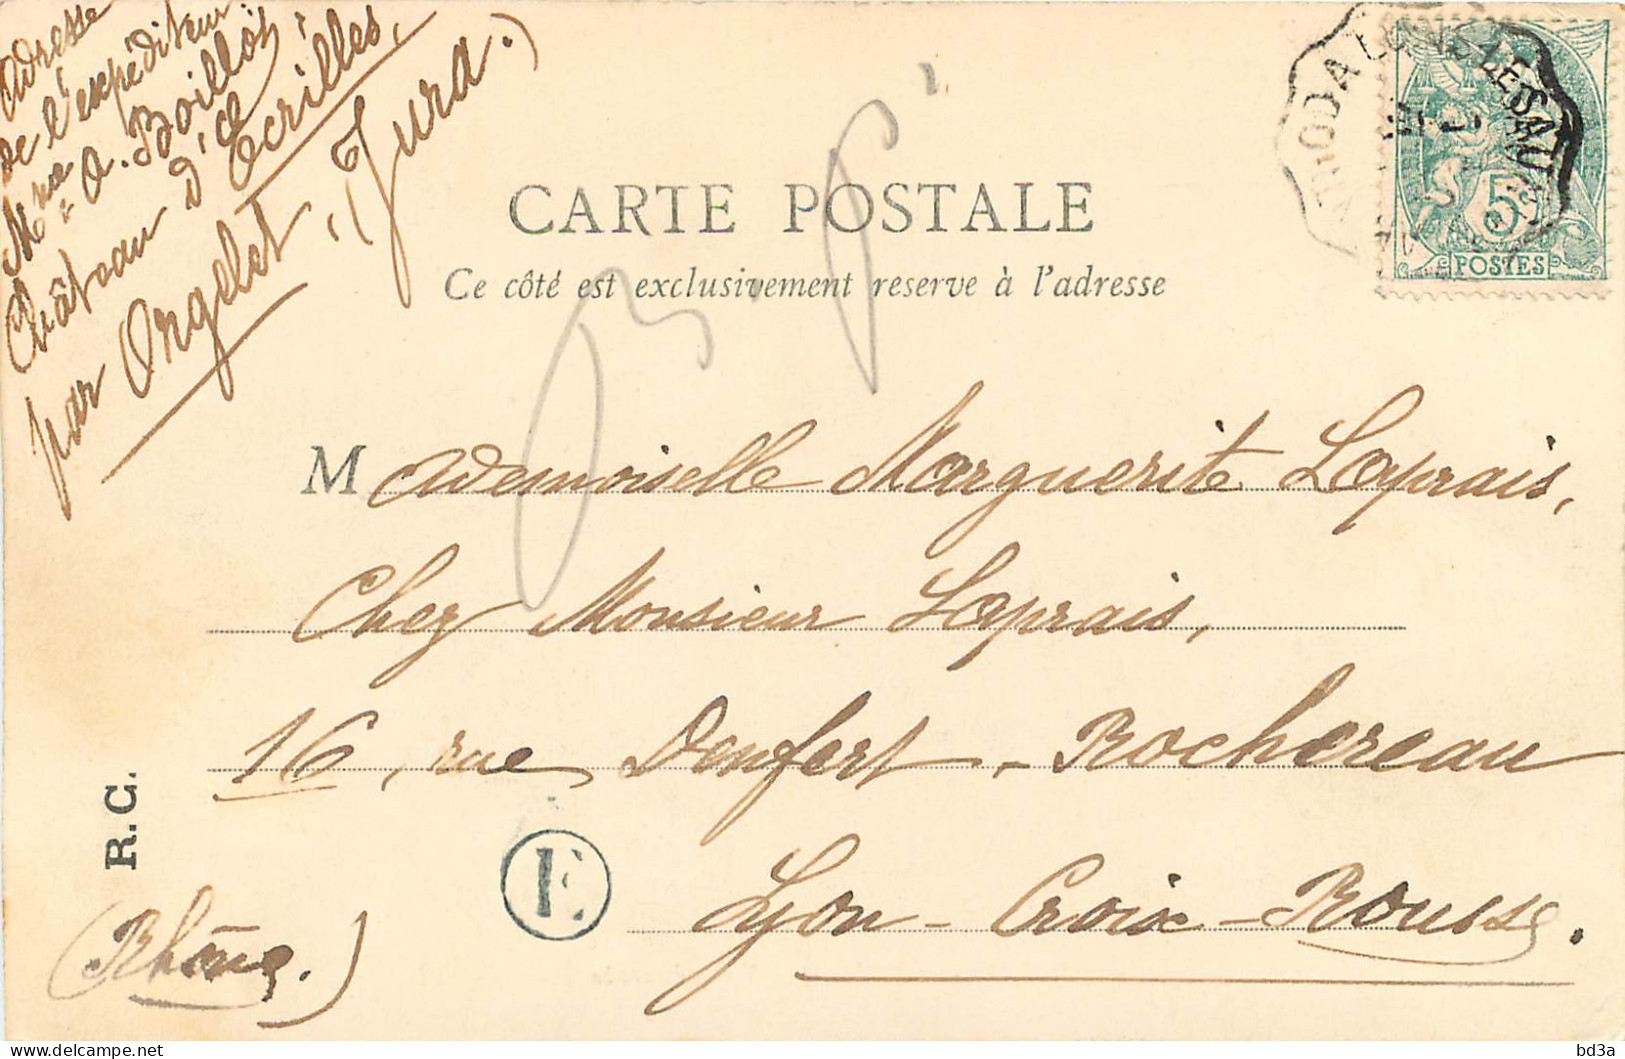 Adresse
de l'expéditeur:
Mme A. Boillot
Château d'Écrilles,
par Orgelet, (Jura.)
CARTE POSTALE
Ce côté est exclusivement reserve à l'adresse
Mademoiselle Marguerite Laprais,
Chez Monsieur Laprais,
16, rue Denfert-Rochereau
Lyon-Croix-Rousse.
(Rhône.)
R.C.
E
5
POSTES
bd3a